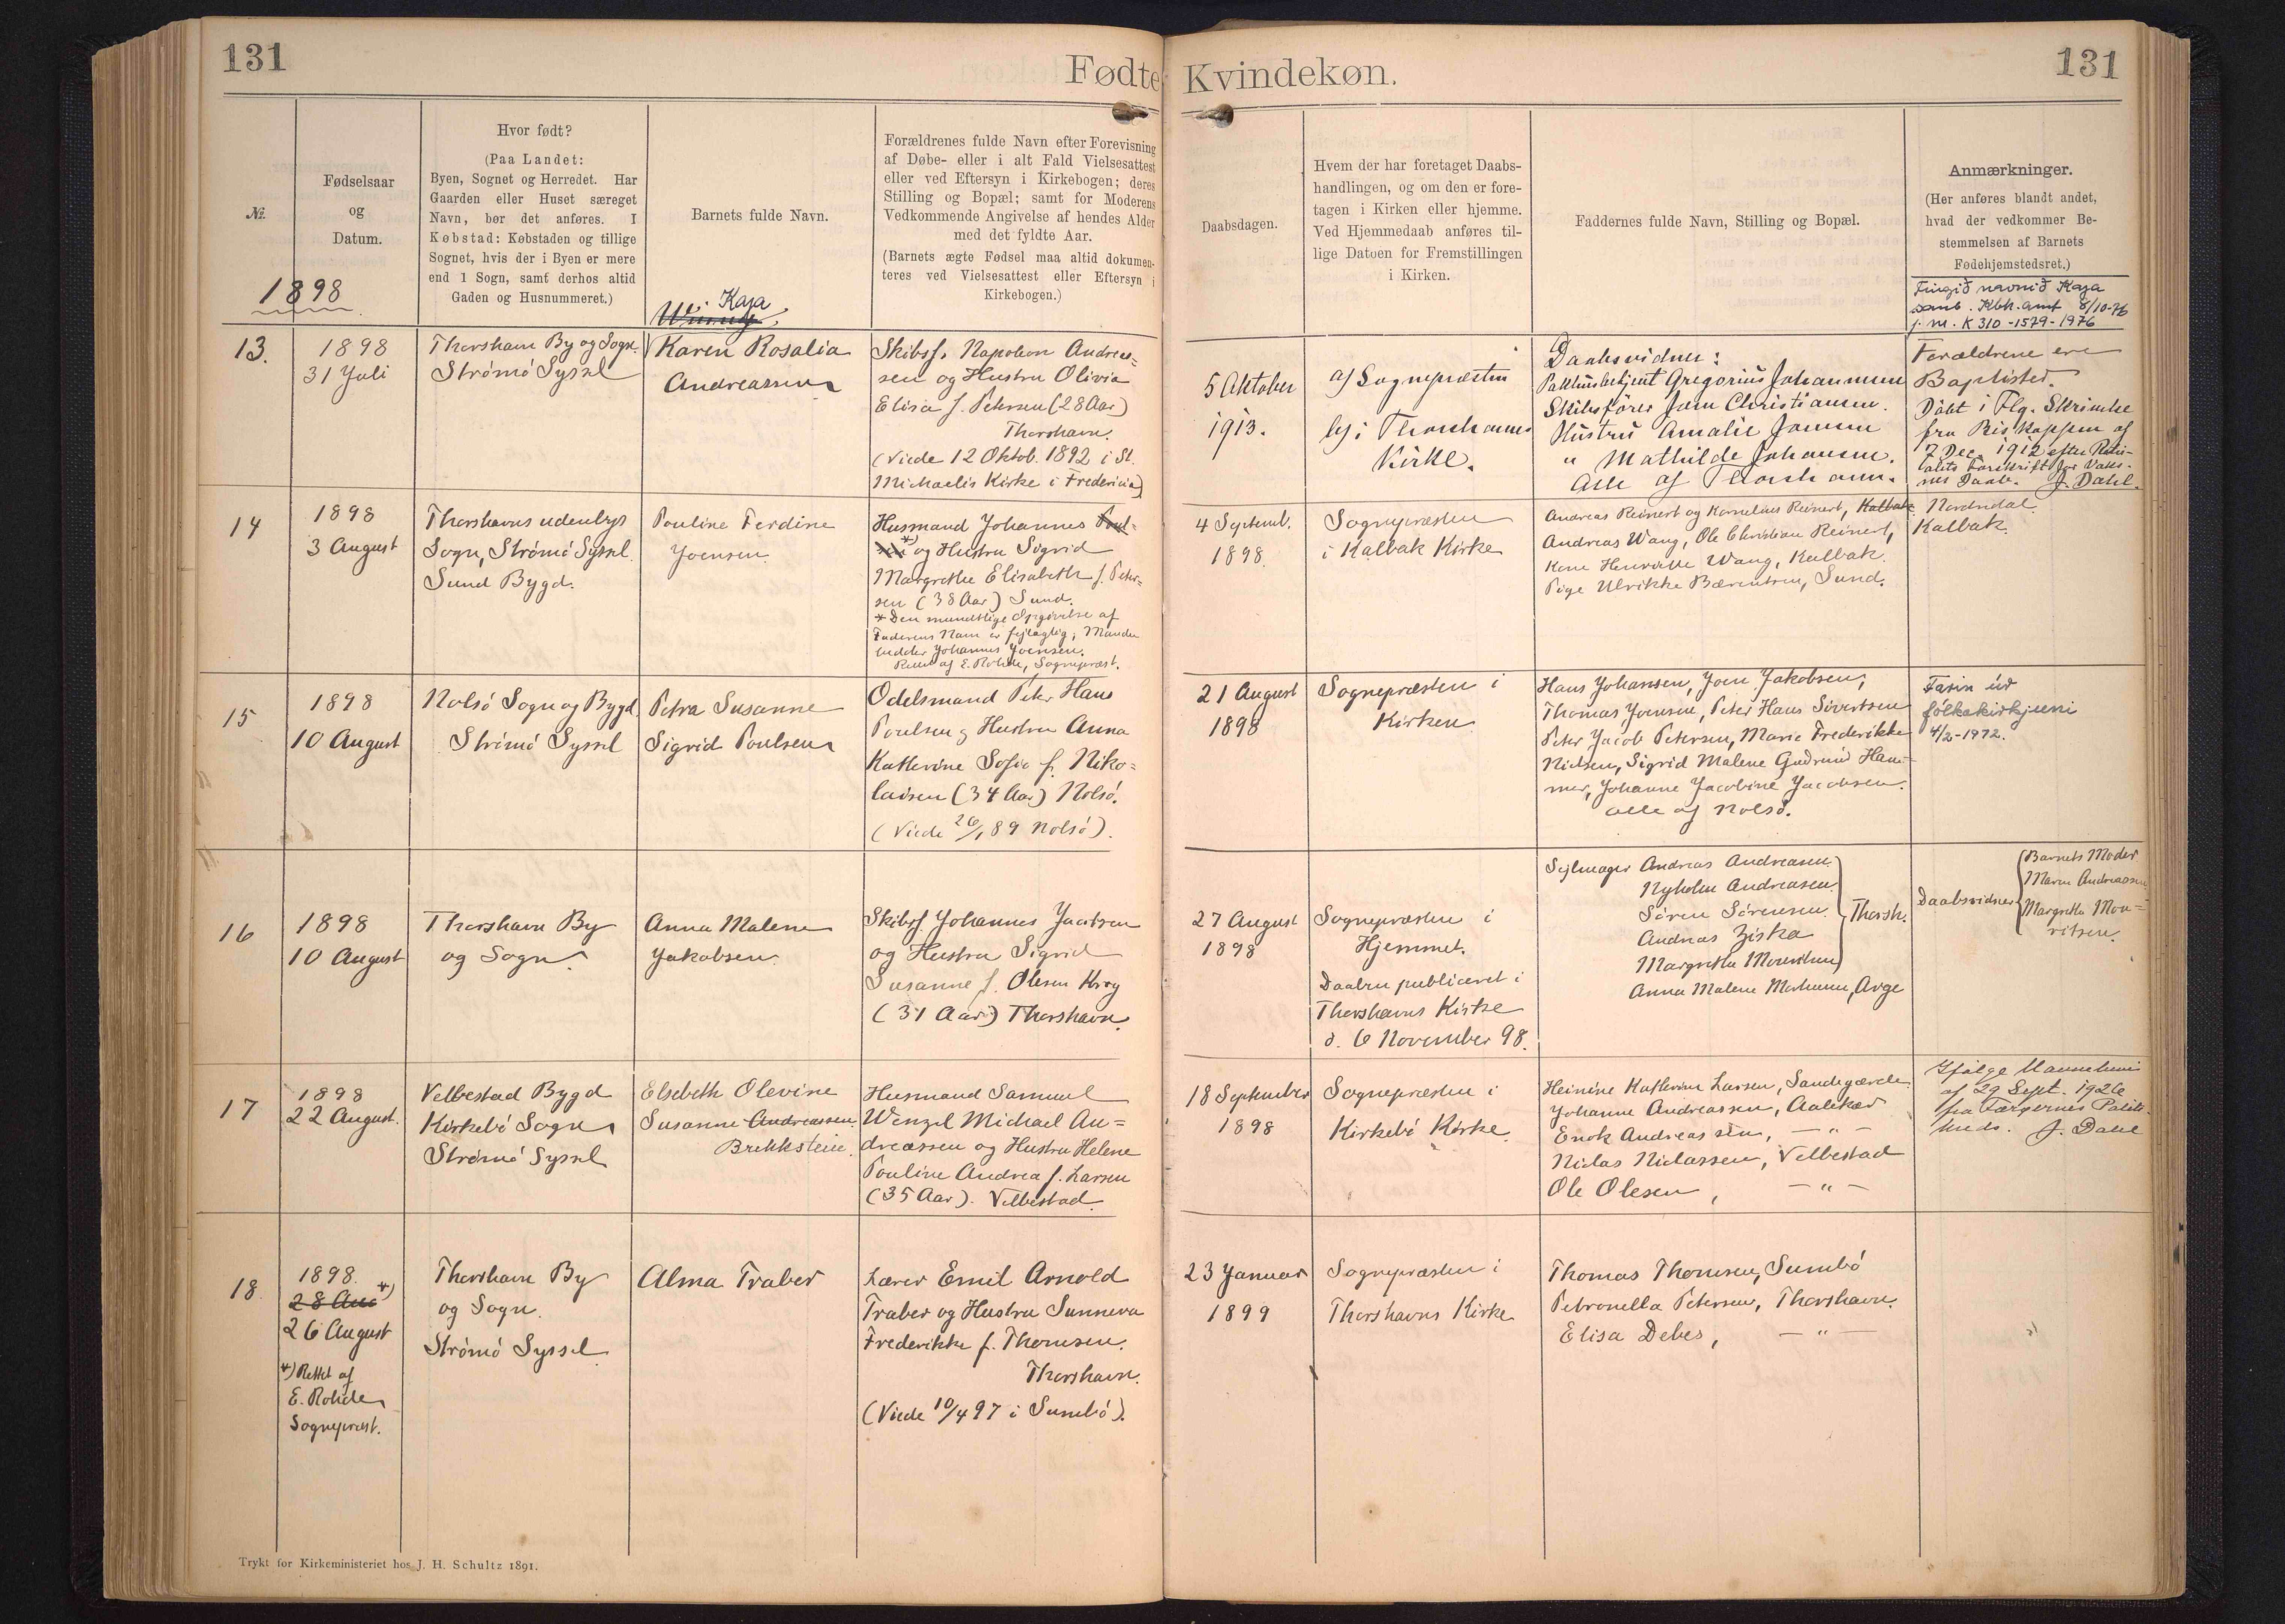 131
Fødte
Kvindekøn.
131
№.
Fødselsaar
og
Datum.
Hvor født?
(Paa Landet:
Byen, Sognet og Herredet. Har
Gaarden eller Huset særeget
Navn, bør det anføres. I
Købstad: Købstaden og tillige
Sognet, hvis der i Byen er mere
end 1 Sogn, samt derhos altid
Gaden og Husnummeret.)
Barnets fulde Navn.
Forældrenes fulde Navn efter Forevisning
af Døbe- eller i alt Fald Vielsesattest
eller ved Eftersyn i Kirkebogen; deres
Stilling og Bopæl; samt for Moderens
Vedkommende Angivelse af hendes Alder
med det fyldte Aar.
(Barnets ægte Fødsel maa altid dokumen-
teres ved Vielsesattest eller Eftersyn i
Kirkebogen.)
Daabsdagen.
Hvem der har foretaget Daabs-
handlingen, og om den er fore-
tagen i Kirken eller hjemme.
Ved Hjemmedaab anføres til-
lige Datoen for Fremstillingen
i Kirken.
Faddernes fulde Navn, Stilling og Bopæl.
Anmærkninger.
(Her anføres blandt andet,
hvad der vedkommer Be-
stemmelsen af Barnets
Fødehjemstedsret.)
1898
13.
1898
31 Juli
Thorshavn By og Sogn.
Strømø Syssel
Kaja
Karen Rosalia
Andreassen
Skibsf. Napoleon Andreas=
sen og Hustru Olivia
Elisa f. Petersen (28 Aar)
Thorshavn.
(Viede 12 Oktob. 1892 i St.
Michaelis Kirke i Fredericia)
5 Oktober
1913.
af Sognepræsten
i Thorshavns
Kirke.
Daabsvidner:
Pakhusbetjent Gregorius Johannesen
Skibsfører Joen Christiansen.
Hustru Amalie Joensen
" Mathilde Johansen.
Alle af Thorshavn.
Fingið navnið Kaja
samb. Kbh. amt 8/10-76
j. m. K 310-1579-1976
Forældrene ere
Baptister.
Døbt i Flg. Skrivelse
fra Biskoppen af
12 Dec. 1912 efter Ritu-
alets Forskrift for Voks-
nes Daab. J. Dahl.
14
1898
3 August
Thorshavns udenbys
Sogn, Strømø Syssel.
Sund Bygd.
Pouline Ferdine
Joensen
Husmand Johannes Poul-
sen *) og Hustru Sigrid
Margrethe Elisabeth f. Peter-
sen (38 Aar) Sund.
* Den mundtlige Opgivelse af
Faderens Navn er fejlagtig; Manden
hedder Johannes Joensen.
Rettet af E. Rohde, Sognepræst.
4 Septemb.
1898.
Sognepræsten
i Kalbak Kirke
Andreas Reinert og Kornelius Reinert, Kalbak
Andreas Wang, Ole Christian Reinert,
Kone Henriette Wang, Kalbak.
Pige Ulrikke Bærentsen, Sund.
Nordredal
Kalbak.
15
1898
10 August
Nolsø Sogn og Bygd
Strømø Syssel
Petra Susanne
Sigrid Poulsen
Odelsmand Peter Hans
Poulsen og Hustru Anna
Katherine Sofie f. Niko=
laisen (34 Aar) Nolsø.
(Viede 26/1 89 Nolsø).
21 August
1898
Sognepræsten i
Kirken
Hans Johansen, Joen Jakobsen,
Thomas Joensen, Peter Hans Sivertsen
Peter Jacob Petersen, Marie Frederikke
Nielsen, Sigrid Malene Gudrud Ham-
mer, Johanne Jacobine Jacobsen.
alle af Nolsø.
Farin úr
fólkakirkjuni
4/2-1972.
16
1898
10 August
Thorshavn By
og Sogn.
Anna Malene
Jakobsen
Skibsf. Johannes Jacobsen
og Hustru Sigrid
Susanne f. Olesen Krog
(31 Aar) Thorshavn.
27 August
1898
Sognepræsten i
Hjemmet.
Daaben publiceret i
Thorshavns Kirke
d. 6 November 98.
Sejlmager Andreas Andreasen
Nyholm Andreasen
Søren Sørensen
Andreas Ziska
Margretha Mouritsen
Thorsh.
Anna Malene Mortensen, Arge
Daabsvidner
Barnets Moder
Maren Andreassen
Margretha Mou=
ritsen.
17
1898
22 August.
Velbestad Bygd
Kirkebø Sogn
Strømø Syssel
Elsebeth Olevine
Susanne Andreassen
Brekkstein.
Husmand Samuel
Wenzel Michael An=
dreassen og Hustru Helene
Pouline Andrea f. Larsen
(35 Aar). Velbestad.
18 September
1898
Sognepræsten i
Kirkebø Kirke.
Heinine Katherine Larsen, Sandegærde
Johanne Andreassen, Aalekær
Enok Andreassen, — " —
Niclas Niclassen, Velbestad
Ole Olesen, — " —
Ifølge Navnebevis
af 29 Sept. 1926
fra Færøernes Politi-
J. Dahl
18.
1898.
28 Aug *)
26 August
*) Rettet af
E. Rohde
Sognepræst.
Thorshavn By
og Sogn.
Strømø Syssel
Alma Traber
Lærer Emil Arnold
Traber og Hustru Sunneva
Frederikke f. Thomsen.
Thorshavn.
(Viede 10/4 97 i Sumbø).
23 Januar
1899
Sognepræsten i
Thorshavns Kirke
Thomas Thomsen, Sumbø
Petronella Petersen, Thorshavn.
Elisa Debes, — " —
Trykt for Kirkeministeriet hos J. H. Schultz 1891.